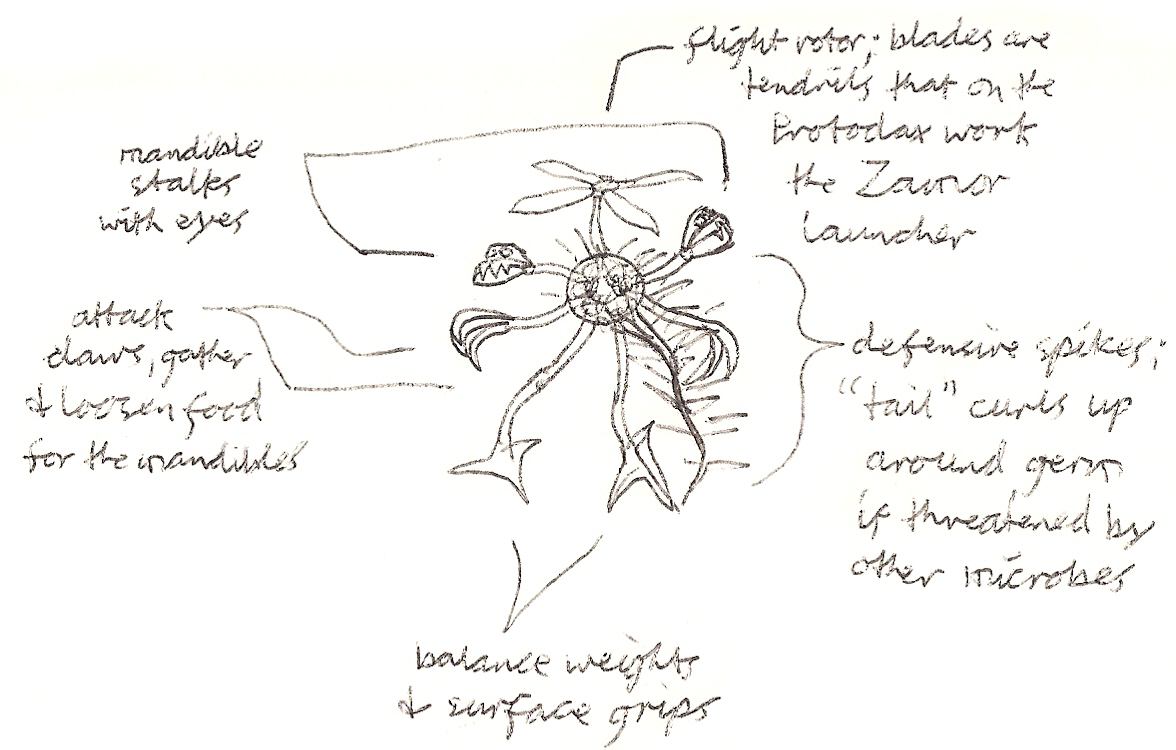 flight rotor; blades are
tendrils that on the
Protodax work
the Zamor
launcher
mandible
stalks
with eyes
attack
claws, gather
& loosen food
for the mandibles
defensive spikes;
"tail" curls up
around germ
if threatened by
other microbes
balance weights
& surface grips